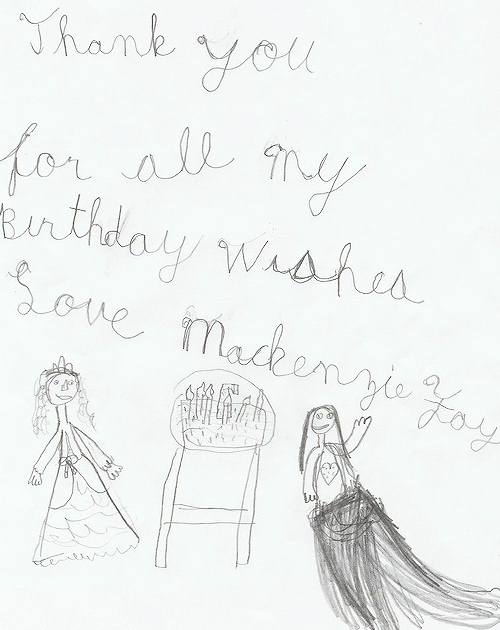 Thank you
for all my
Birthday Wishes
Love Mackenzie Zoy